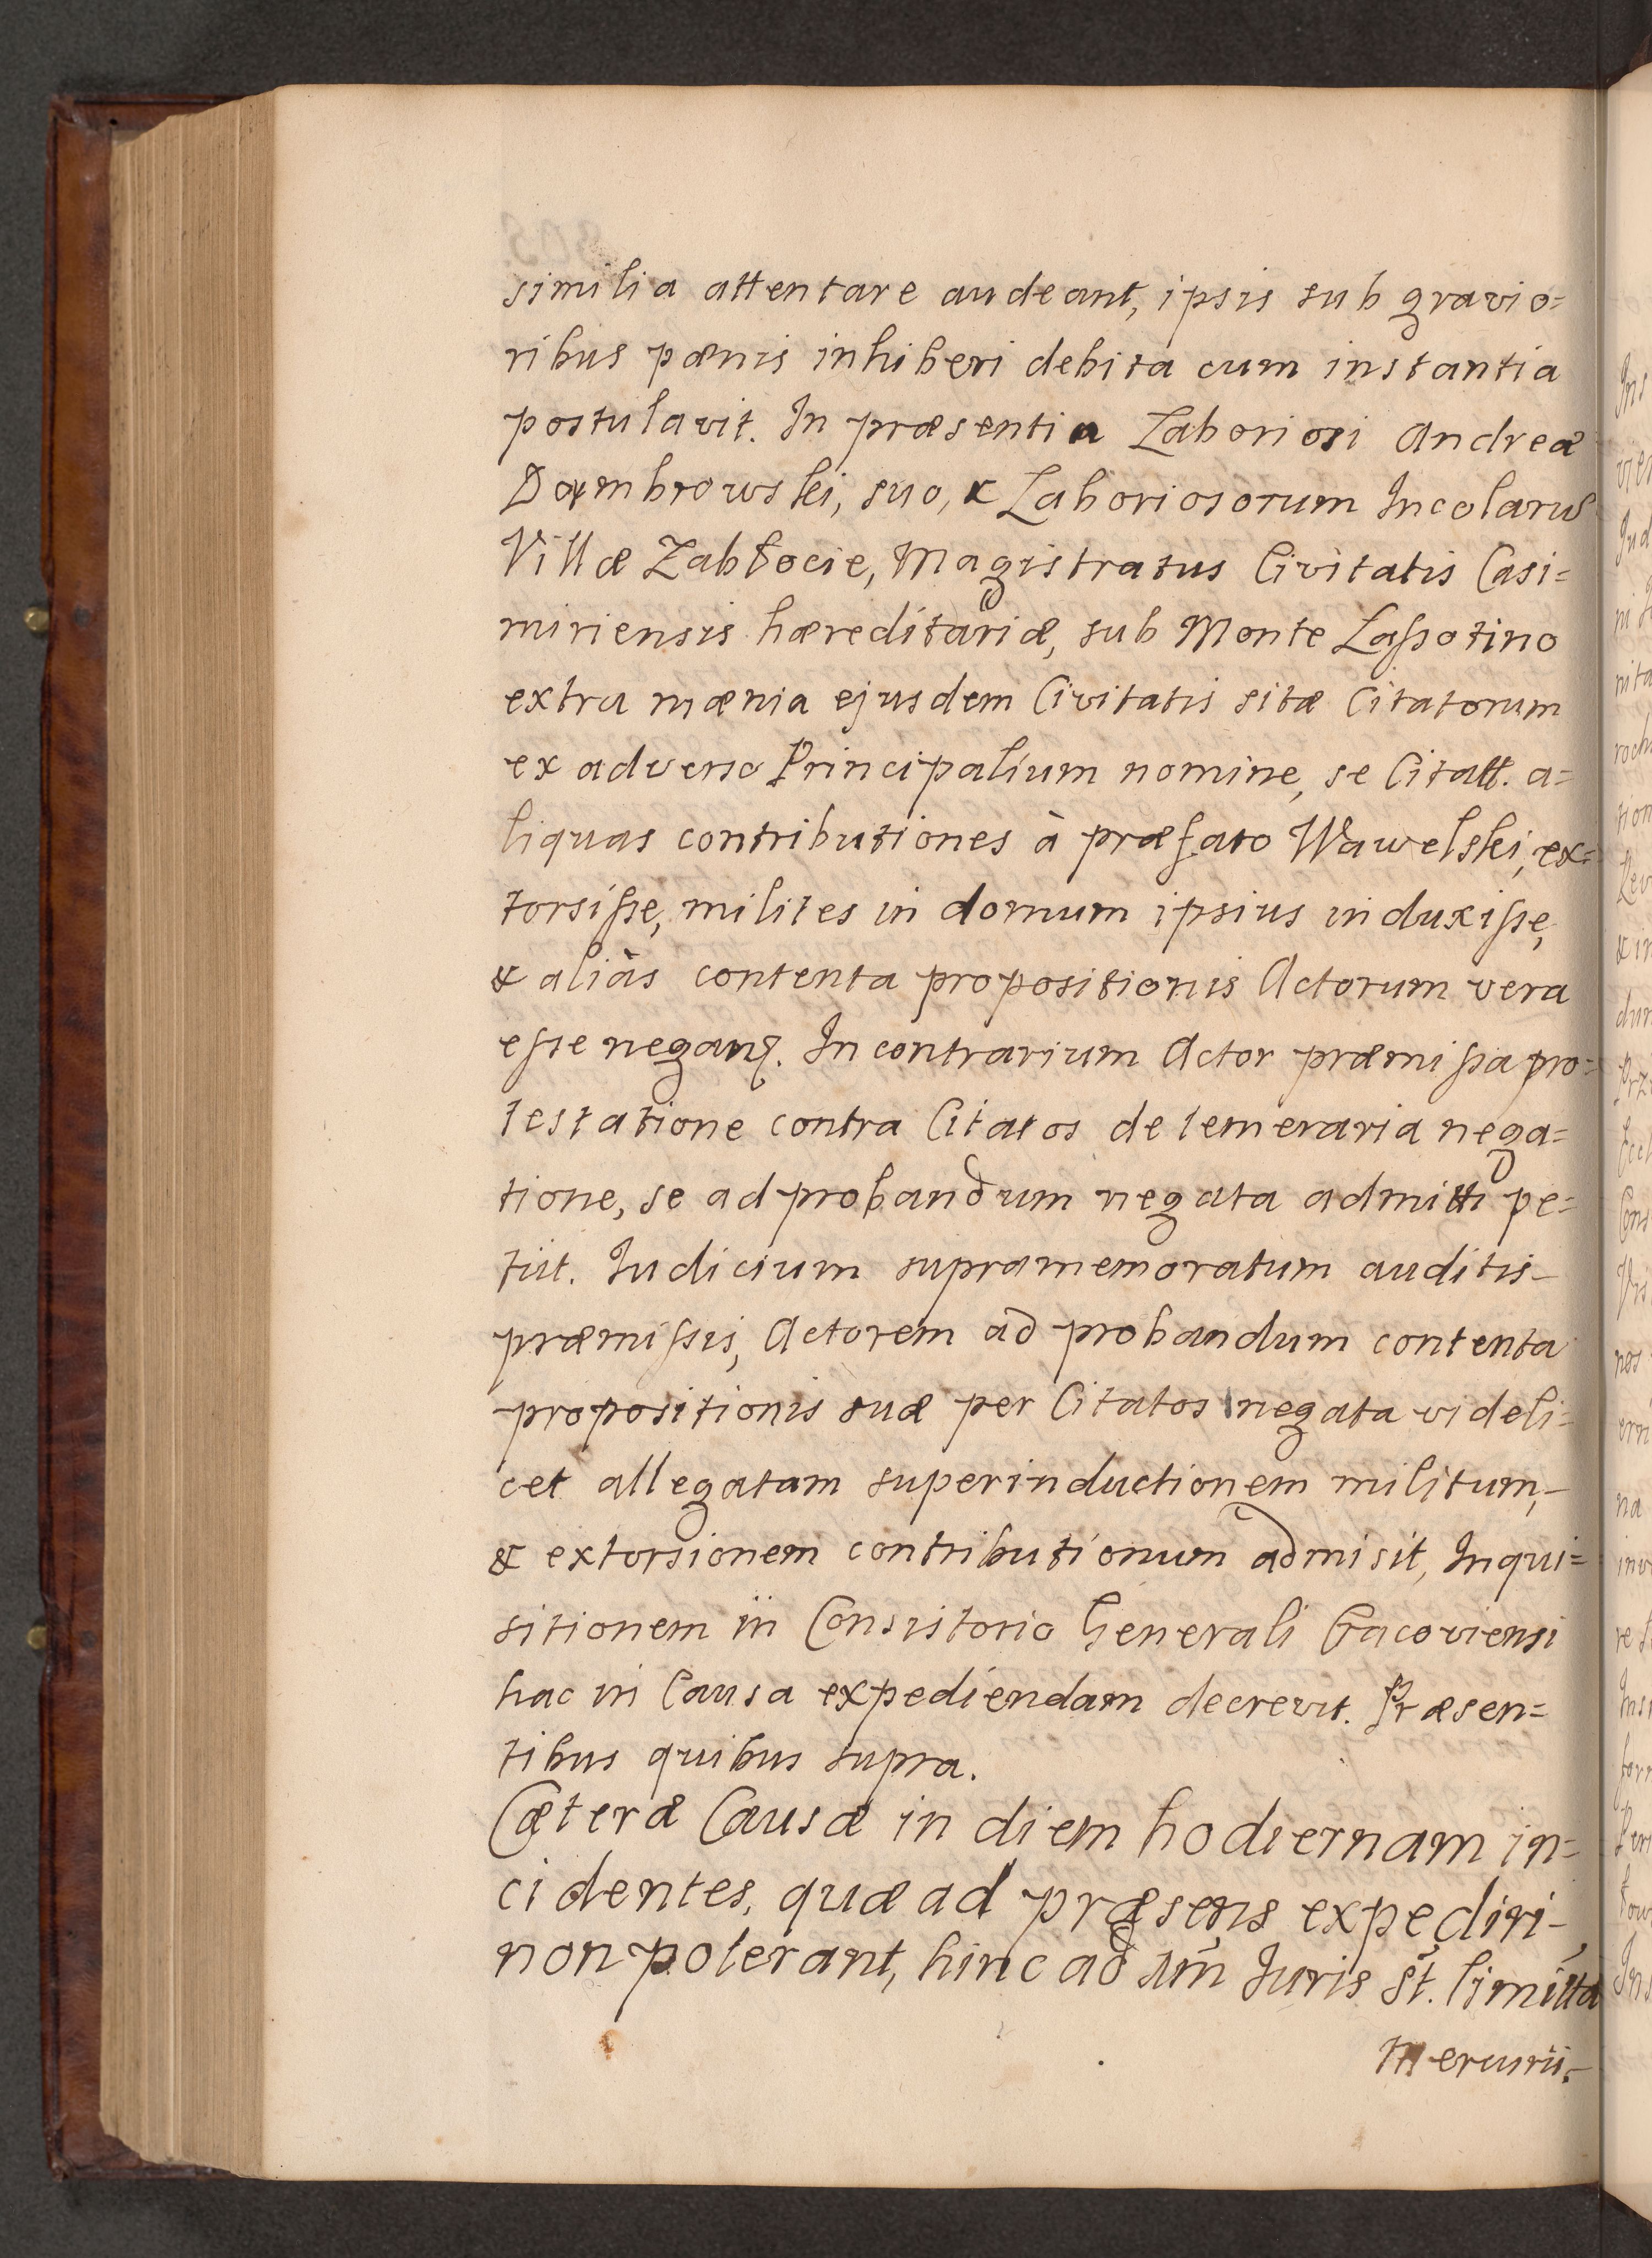 similia attentare audeant, ipsis sub gravio=
ribus pœnis inhiberi debita cum instantia
postulavit. In præsentia Laboriosi Andreæ
Dąmbrowski, suo, & Laboriosorum Incolarum
Villæ Zabłocie, Magistratus Civitatis Casi=
miriensis hæreditariæ, sub Monte Lassotino
extra mænia ejusdem Civitatis sitæ Citatorum
ex adverso Principalium nomine, se Citatt. a=
liquas contributiones à præfato Wawelski, ex=
torsisse, milites in domum ipsius induxisse,
& aliàs contenta propositionis Actorum vera
esse neganꝗ. In contrarium Actor præmissa pro=
testatione contra Citatos de temeraria nega=
tione, se ad probandum negata admitti pe=
tiit. Iudicium supramemoratum auditis
præmissis, Actorem ad probandum contenta
propositionis suæ per Citatos negata videli=
cet allegatam superinductionem militum,
& extorsionem contributionum admisit, Inqui=
sitionem in Consistorio Generali Cracoviensi
hac in Causa expediendam decrevit. Præsen=
tibus quibus supra.
Cæteræ Causæ in diem hodiernam in=
cidentes, quæ ad præsens expediri
non poterant, hinc ad Juris
Mercurii.